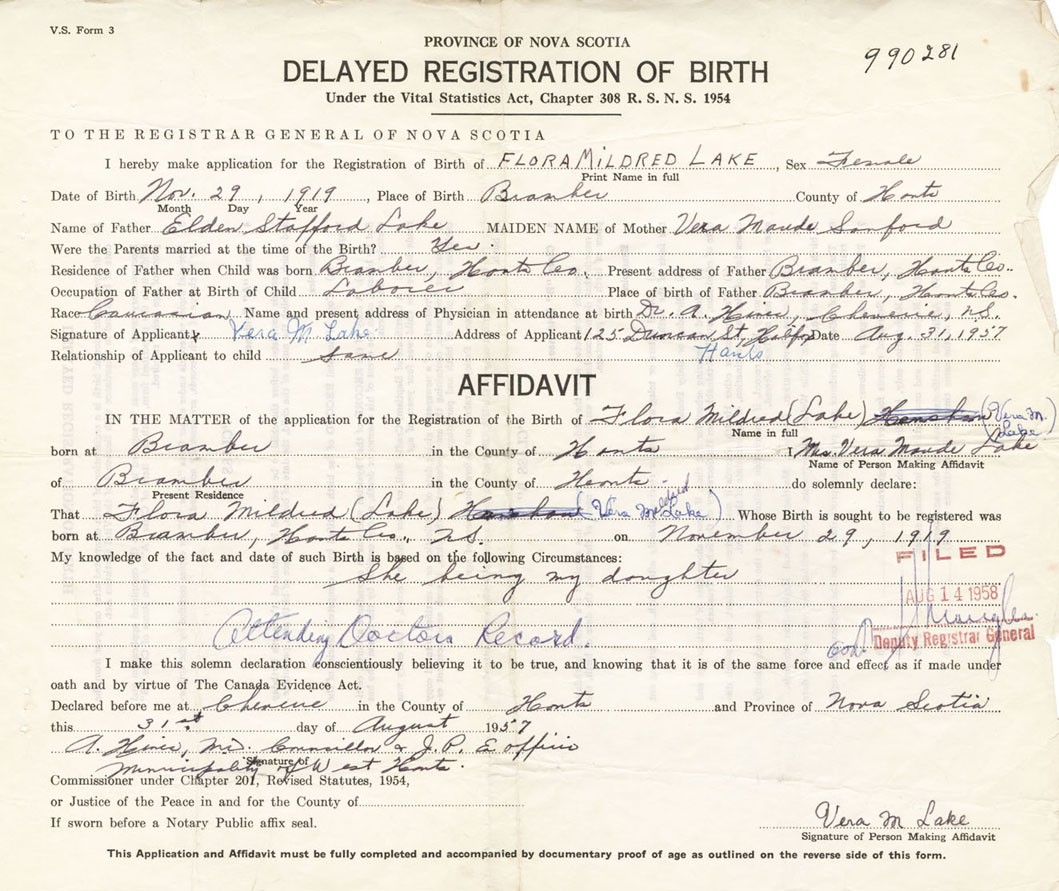 V.S. Form 3
PROVINCE OF NOVA SCOTIA
990281
DELAYED REGISTRATION OF BIRTH
Under the Vital Statistics Act, Chapter 308 R. S. N. S. 1954
TO THE REGISTRAR GENERAL OF NOVA SCOTIA
I hereby make application for the Registration of Birth of FLORA MILDRED LAKE, Sex Female
Print Name in full
Date of Birth Nov. 29, 1919, Place of Birth Bramber County of Hants
Month Day Year
Name of Father Elden Stafford Lake MAIDEN NAME of Mother Vera Maude Sanford
Were the Parents married at the time of the Birth? Yes.
Residence of Father when Child was born Bramber, Hants Co., Present address of Father Bramber, Hants Co.
Occupation of Father at Birth of Child Laborer Place of birth of Father Bramber, Hants Co.
Race Caucasian Name and present address of Physician in attendance at birth Dr. A. Hines, Cheverie, N.S.
Signature of Applicant x Vera M Lake Address of Applicant 125 Duncan St, Halifax Date Aug. 31, 1957
Relationship of Applicant to child Same Hants
AFFIDAVIT
IN THE MATTER of the application for the Registration of the Birth of Flora Mildred (Lake) Henshaw (Vera M. Lake)
Name in full
born at Bramber in the County of Hants I Mrs. Vera Maude Lake
Name of Person Making Affidavit
of Bramber in the County of Hants do solemnly declare:
Present Residence
That Flora Mildred (Lake) Henshaw (Vera Mildred Lake) Whose Birth is sought to be registered was
born at Bramber, Hants Co., N.S. on November 29, 1919
My knowledge of the fact and date of such Birth is based on the following Circumstances:
She being my daughter
FILED
AUG 14 1958
Attending Doctors Record.
Deputy Registrar General
I make this solemn declaration conscientiously believing it to be true, and knowing that it is of the same force and effect as if made under
oath and by virtue of The Canada Evidence Act.
Declared before me at Cheverie in the County of Hants and Province of Nova Scotia
this 31st day of August 1957
A. Hines, MD. Councillor & J.P. Ex officio
Municipality of West Hants.
Signature of
Commissioner under Chapter 201, Revised Statutes, 1954,
or Justice of the Peace in and for the County of
If sworn before a Notary Public affix seal.
Vera M Lake
Signature of Person Making Affidavit
This Application and Affidavit must be fully completed and accompanied by documentary proof of age as outlined on the reverse side of this form.